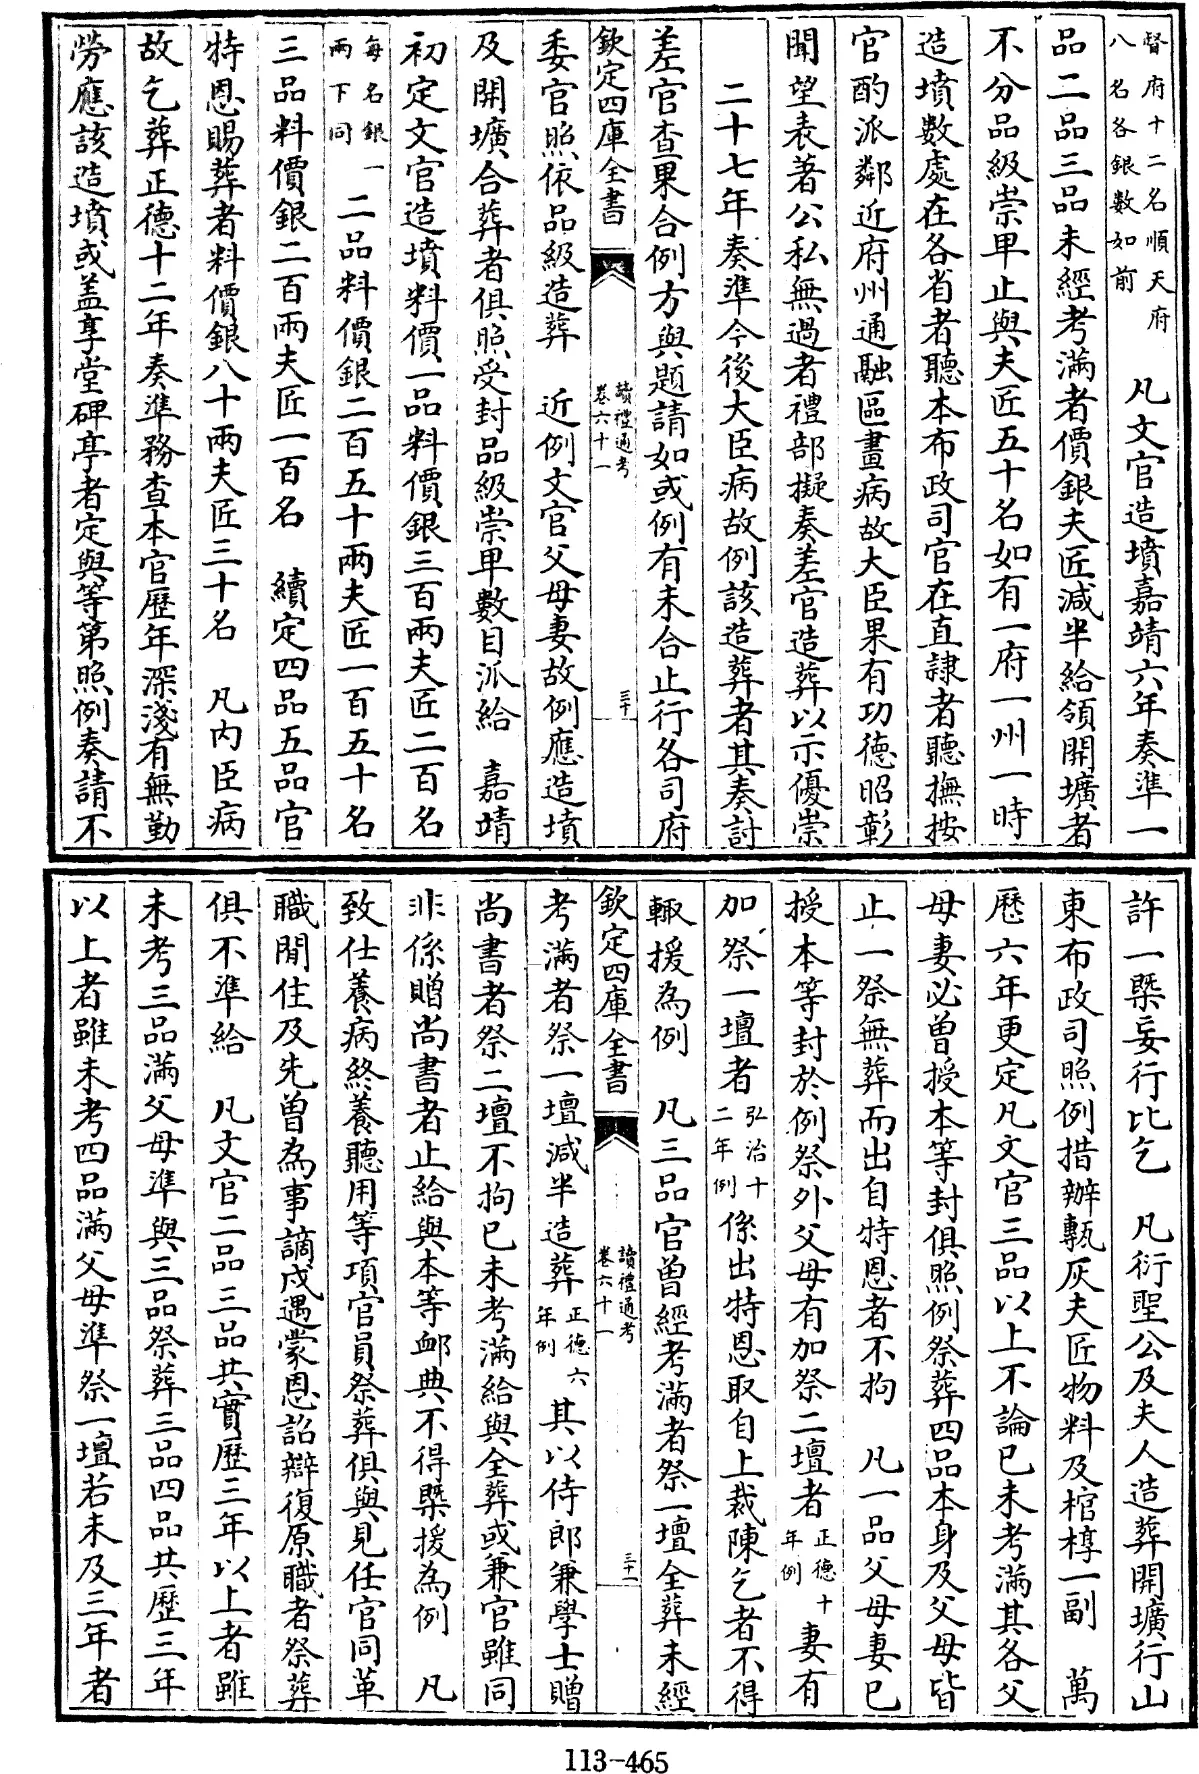 督府十二名順天府
八名各銀數如前
凡文官造墳嘉靖六年奏準一
品二品三品未經考滿者價銀夫匠減半給領開壙者
不分品級崇卑止與夫匠五十名如有一府一州一時
造墳數處在各省者聽本布政司官在直隷者聽撫按
官酌派鄰近府州通融區畫病故大臣果有功德昭彰
聞望表著公私無過者禮部擬奏差官造葬以示優崇
二十七年奏準今後大臣病故例該造葬者其奏討
差官查果合例方與題請如或例有未合止行各司府
欽定四庫全書
讀禮通考
卷六十一
三十
委官照依品級造葬 近例文官父母妻故例應造墳
及開壙合葬者俱照受封品級崇卑數目派給 嘉靖
初定文官造墳料價一品料價銀三百兩夫匠二百名
每名銀一
兩下同
二品料價銀二百五十兩夫匠一百五十名
三品料價銀二百兩夫匠一百名 續定四品五品官
特恩賜葬者料價銀八十兩夫匠三十名 凡內臣病
故乞葬正德十二年奏準務查本官歷年深淺有無勤
勞應該造墳或盖享堂碑亭者定與等第照例奏請不
許一槩妄行比乞 凡衍聖公及夫人造葬開壙行山
東布政司照例措辦甎灰夫匠物料及棺椁一副 萬
歷六年更定凡文官三品以上不論已未考滿其各父
母妻必曾授本等封俱照例祭葬四品本身及父母皆
止一祭無葬而出自特恩者不拘 凡一品父母妻已
授本等封於例祭外父母有加祭二壇者
正德十
年例
妻有
加祭一壇者
弘治十
二年例
係出特恩取自上裁陳乞者不得
輙援為例 凡三品官曾經考滿者祭一壇全葬未經
欽定四庫全書
讀禮通考
卷六十一
三十一
考滿者祭一壇減半造葬
正德六
年例
其以侍郎兼學士贈
尚書者祭二壇不拘已未考滿給與全葬或兼官雖同
非係贈尚書者止給與本等卹典不得槩援為例 凡
致仕養病終養聽用等項官員祭葬俱與見任官同革
職閒住及先曾為事謫戍遇蒙恩詔辯復原職者祭葬
俱不準給 凡文官二品三品共實歷三年以上者雖
未考三品滿父母準與三品祭葬三品四品共歷三年
以上者雖未考四品滿父母準祭一壇若未及三年者
113-465